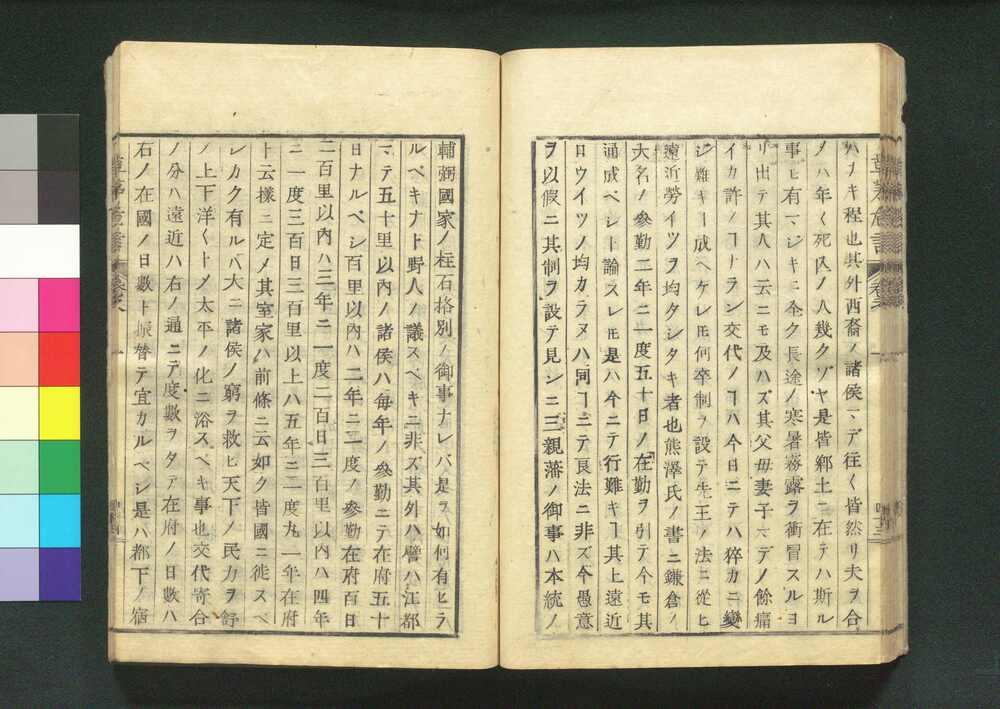 ハナキ程也其外西裔ノ諸侯マデ往々皆然リ夫ヲ合
メハ年々死队ノ人幾クゾヤ是皆鄕土ニ在テハ斯ル
事モ有マジキニ全ク長途ノ寒暑霧露ヲ衝冒スルヨ
リ出テ其人ハ云ニモ及ハズ其父毋妻子マデノ餘痛
イカ許ノヿナラン交代ノヿハ今日ニテハ猝カニ變
ジ難キヿ成ヘケレ𪜈何卒制ヲ設テ先王ノ法ニ從ヒ
遠近勞イツヲ均タシタキ者也熊澤氏ノ書ニ鎌倉ノ
大名ノ參勤二年ニ一度五十日ノ在勤ヲ引テ今モ其
通成ベシト論スレ𪜈是ハ今ニテ行難キヿ其上遠近
ロウイツノ均カラヌハ同ヿニテ良法ニ非ズ今愚意
ヲ以假ニ其制ヲ設テ見ンニ三親藩ノ御事ハ本統ノ
輔弼國家ノ柱石格別ノ御事ナレバ是ヲ如何有ヒラ
ルベキナト野人ノ議スベキニ非ズ其外ハ譬ハ江都
マテ五十里以内ノ諸侯ハ每年ノ參勤ニテ在府五十
日ナルベシ百里以内ハ二年ニ一度ノ參勤在府百日
二百里以內ハ三年ニ一度二百日三百里以內ハ四年
ニ一度三百日三百里以上ハ五年ニ一度九一年在府
ト云樣ニ定メ其室家ハ前條ニ云如ク皆國ニ徙スベ
レカク有ルバ大ニ諸侯ノ窮ヲ救ヒ天下ノ民力ヲ舒
ノ上下洋々トメ太平ノ化ニ浴スベキ事也交代寄合
ノ分ハ遠近ハ右ノ通ニテ度數ヲタテ在府ノ日數ハ
右ノ在國ノ日數ト振替テ宜カルベシ是ハ都下ノ宿